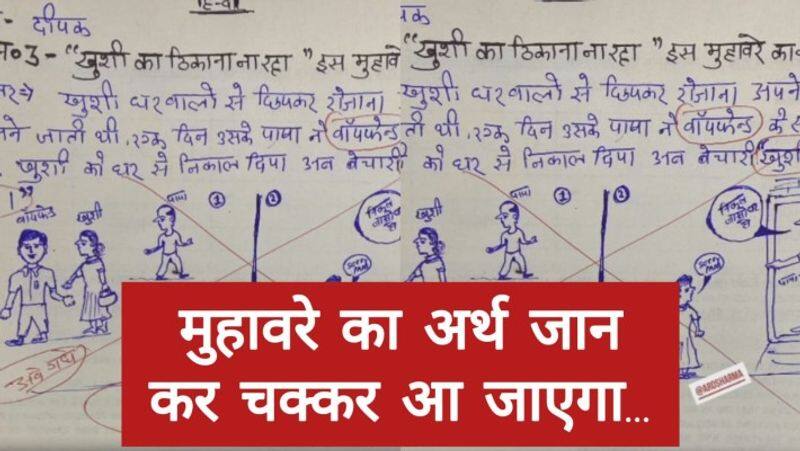 हिन्दी
दीपक
न० 3 - "खुशी का ठिकाना ना रहा" इस मुहावरे
खुशी घरवालो से छिपकर रोजाना
ने जाती थी, एक दिन उसके पापा ने बॉयफ्रेन्ड
खुशी को घर से निकाल दिया अब बेचारी
बॉयफ्रेंड
खुशी
पापा
1
2
निकल
Sorry
पापा
अबे गधे
पक
खुशी का ठिकाना ना रहा" इस मुहावरे का
खुशी घरवालो से छिपकर रोजाना अपने
ती थी, एक दिन उसके पापा ने बॉयफ्रेन्ड के
को घर से निकाल दिया अब बेचारी "खुशी
खुशी
पापा
1
2
निकल
Sorry
पापा
पापा
@ARDSHARMA
मुहावरे का अर्थ जान
कर चक्कर आ जाएगा...